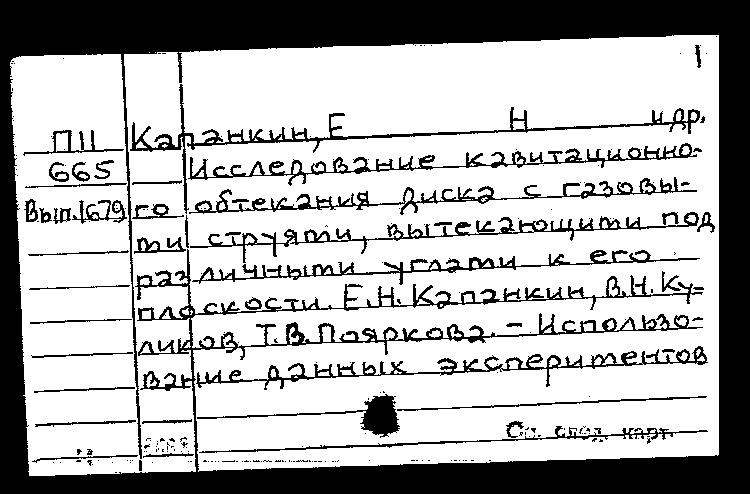 1
П11 Капанкин, Е Н и др.
665 Исследование кавитационно-
Вып.1679 го обтекания диска с газовы-
ми струями, вытекающими под
различными углами к его
плоскости. Е.Н. Капанкин, В.Н. Ку=
ликов, Т.В. Пояркова. – Использо-
вание данных экспериментов
См. след. карт.